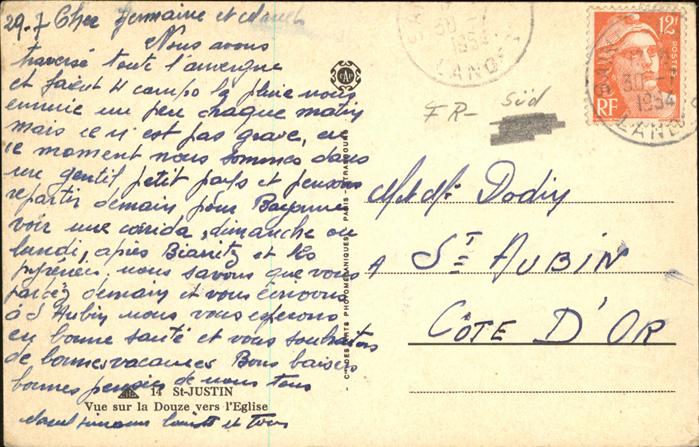 29.7 Cher Germaine et
Nous avons
traversé tout l'auvergne
et faient 4 campo la pluie nous
ennuie un peu chaque matin
mais ce n'est pas grave, en
ce moment nous sommes dans
un gentif petit pays et pensons
repartir demain pour Bayonne
voir une corrida, dimanche ou
lundi, après Biarritz et les
pyrénées, nous savons que vous
partez demain et vous écrivons
à St Aubin nous vous esperons
en bonne santé et vous souhaitons
de bonnes vacances Bons baisers
bonnes pensées de nous tous
14 St-JUSTIN
Vue sur la Douze vers l'Eglise
et tous
CAP
Cie DES ARTS PHOTOMÉCANIQUES PARIS - STRASBOURG
30 -7
1954
LANDES
12F
POSTES
RF
30 -7
1954
LANDES
FR- Süd
M et Me Dodin
A St AUBIN
CÔTE D'OR